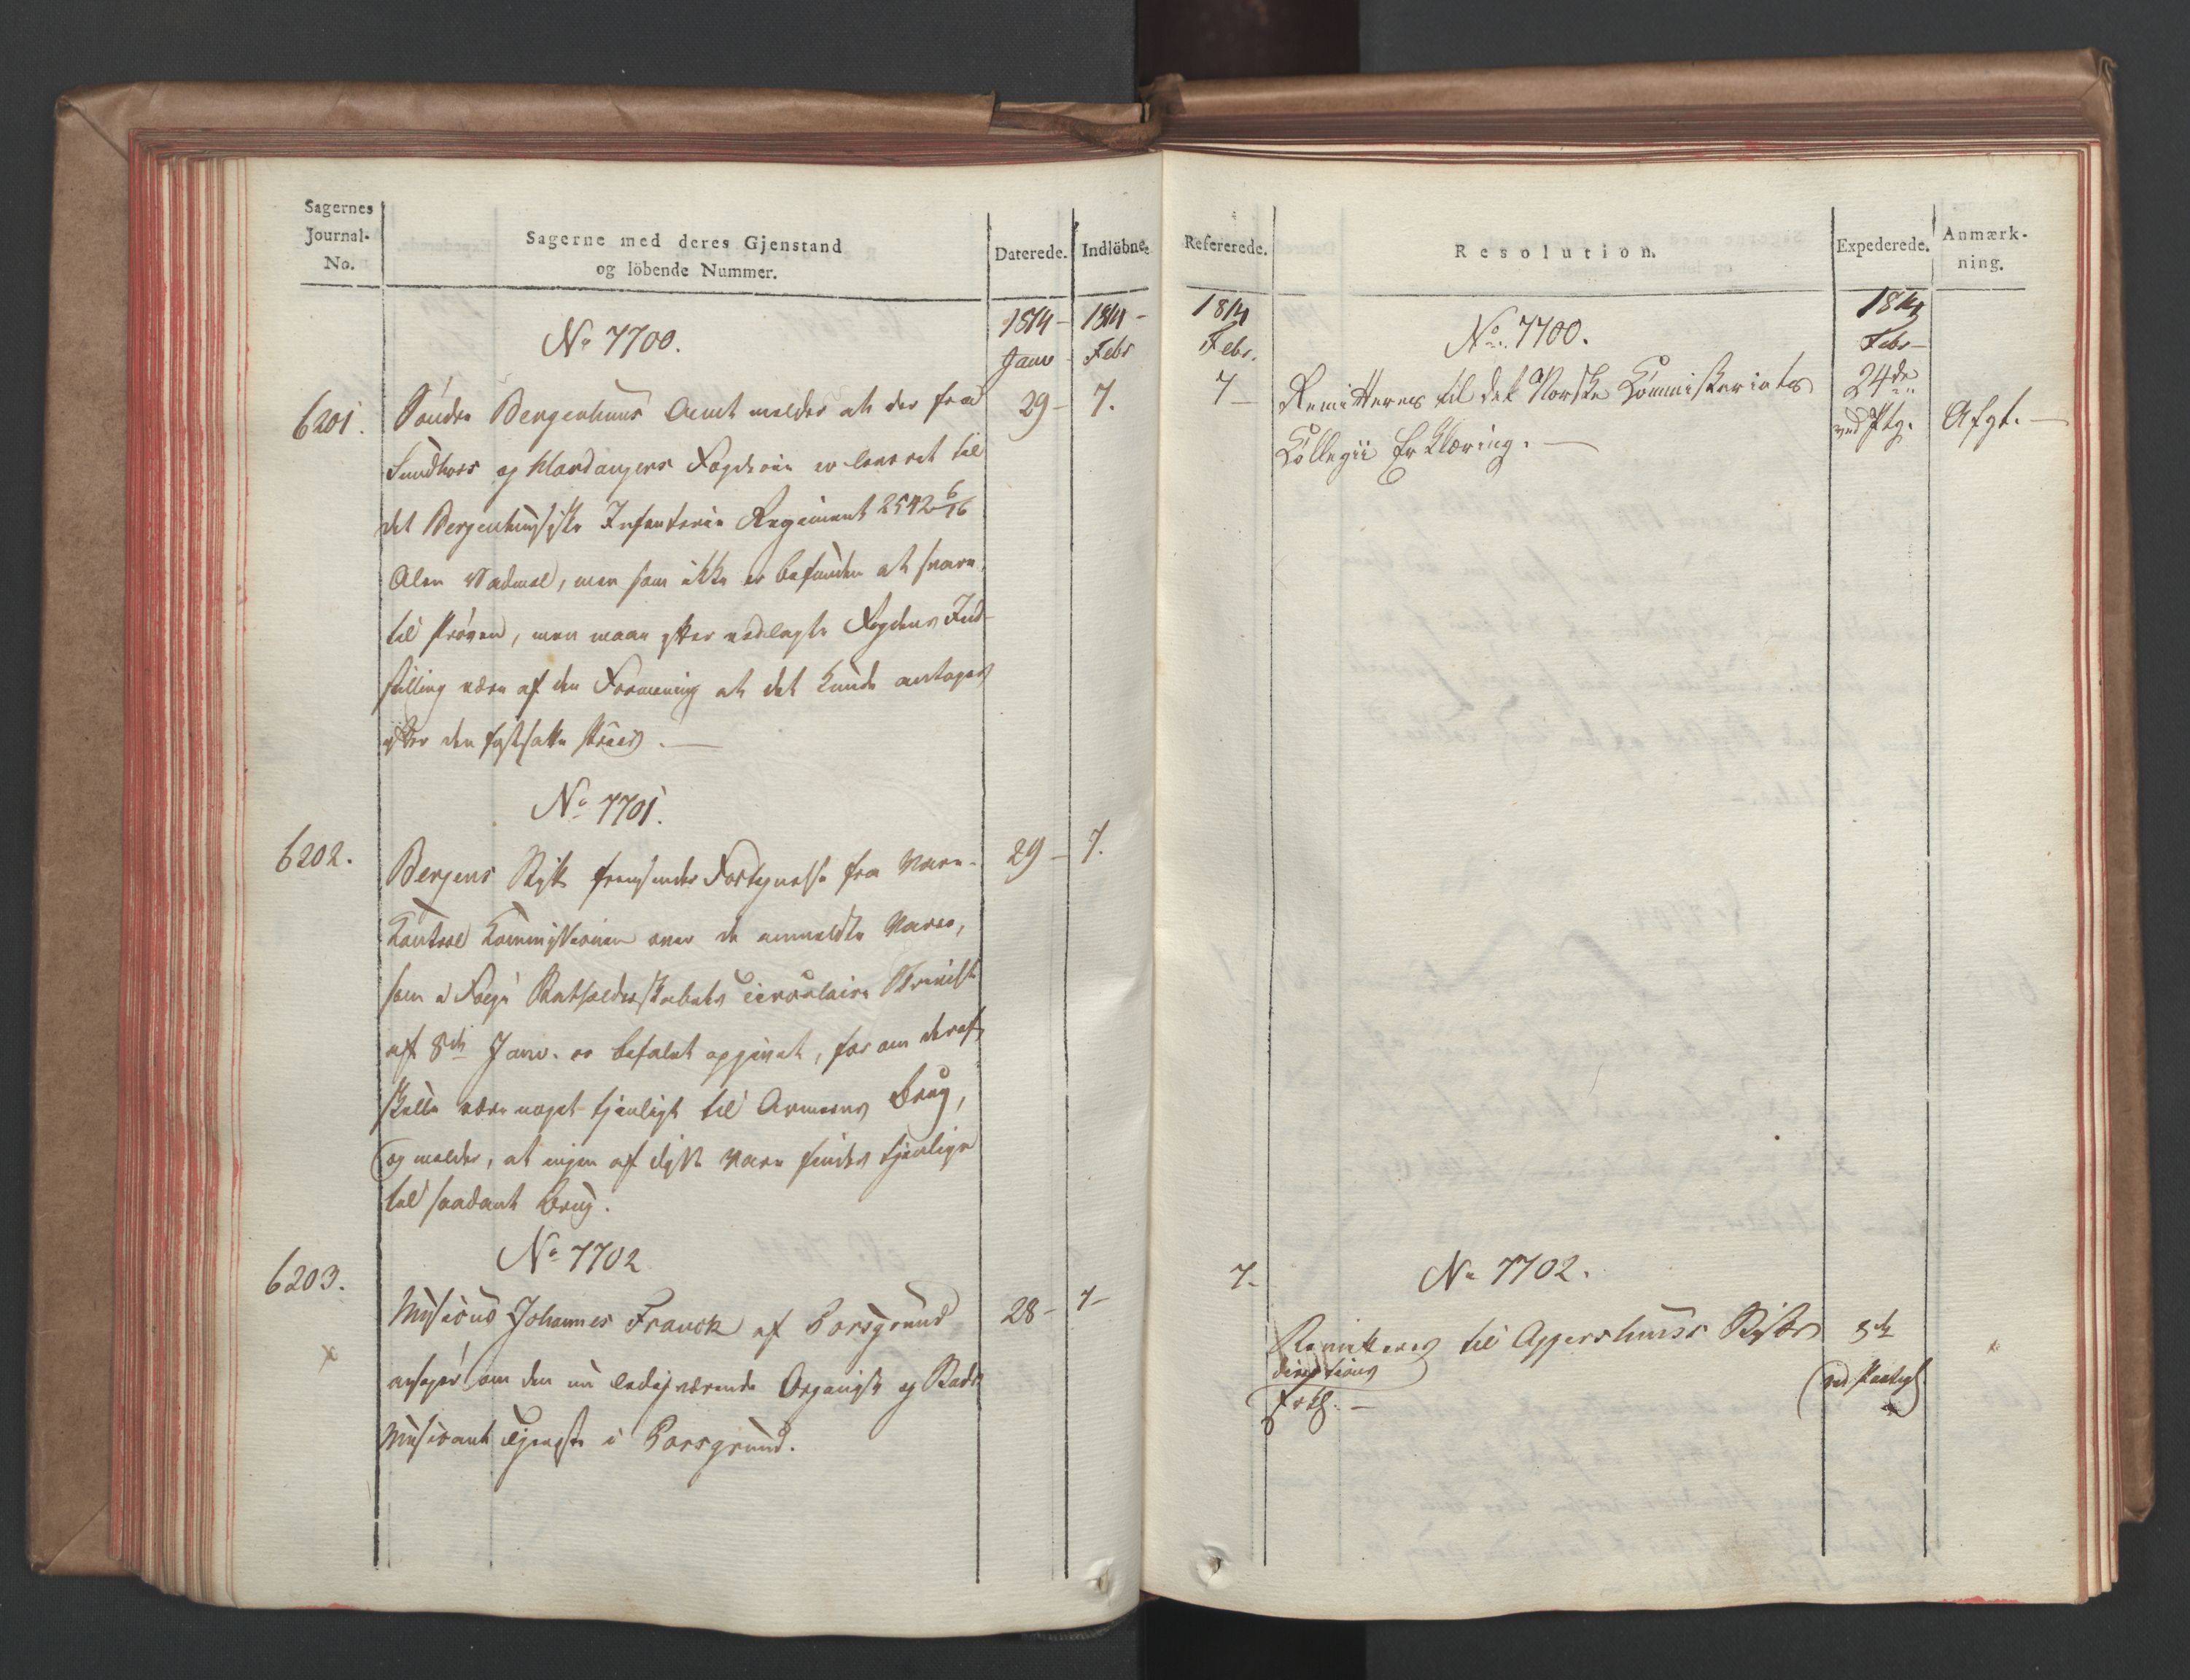 Sagernes
Journal-
No.
Sagerne med deres Gjenstand
og löbende Nummer.
Daterede.
Indlöbne.
1814 -
Janv
1814 -
Febr
No 7700.
6201.
Söndre Bergenhuus Amt melder at der fra
29 -
7.
Sundhors og Hardangers Fogderie er leveret til
det Bergenhuusiske Infanterie Regiment 2542 6/16
Alen Vadmel, men som ikke er befunden at svare
til Prøven, men maae efter vedlagte Fogdens Ind-
stilling være af den Formening at det kunde antages
efter den fastsatte Priis. —
No 7701.
6202.
Bergens Stift fremsender Fortegnelse fra Vare-
29 -
7.
Control Commissionen over de anmeldte Varer,
som i Følge Statholderskabets circulaire Skrivelse
af 8de Janv. er befalet opgivet, for om deraf
skulle være noget tjenligt til Armeens Brug,
og melder, at ingen af disse Vare findes tjenlige
til saadant Brug.
No 7702
6203.
Musicus Johannes Franck af Porsgrund
28 -
7 -
ansøger om den nu ledigværende Organist og Stads
Musicant Tjeneste i Porsgrund.
Refererede.
Resolution.
Expederede.
Anmærk-
ning.
1814
Febr.
1814
Febr -
No. 7700.
7 -
Remitteres til det Norske Commissariats
24de
ved Ptg.
Afgt. —
Collegii Erklæring. —
7 -
No 7702.
Remitteres til Aggershuus Stifts
8de
ved Paateg
directions
Erkl. —